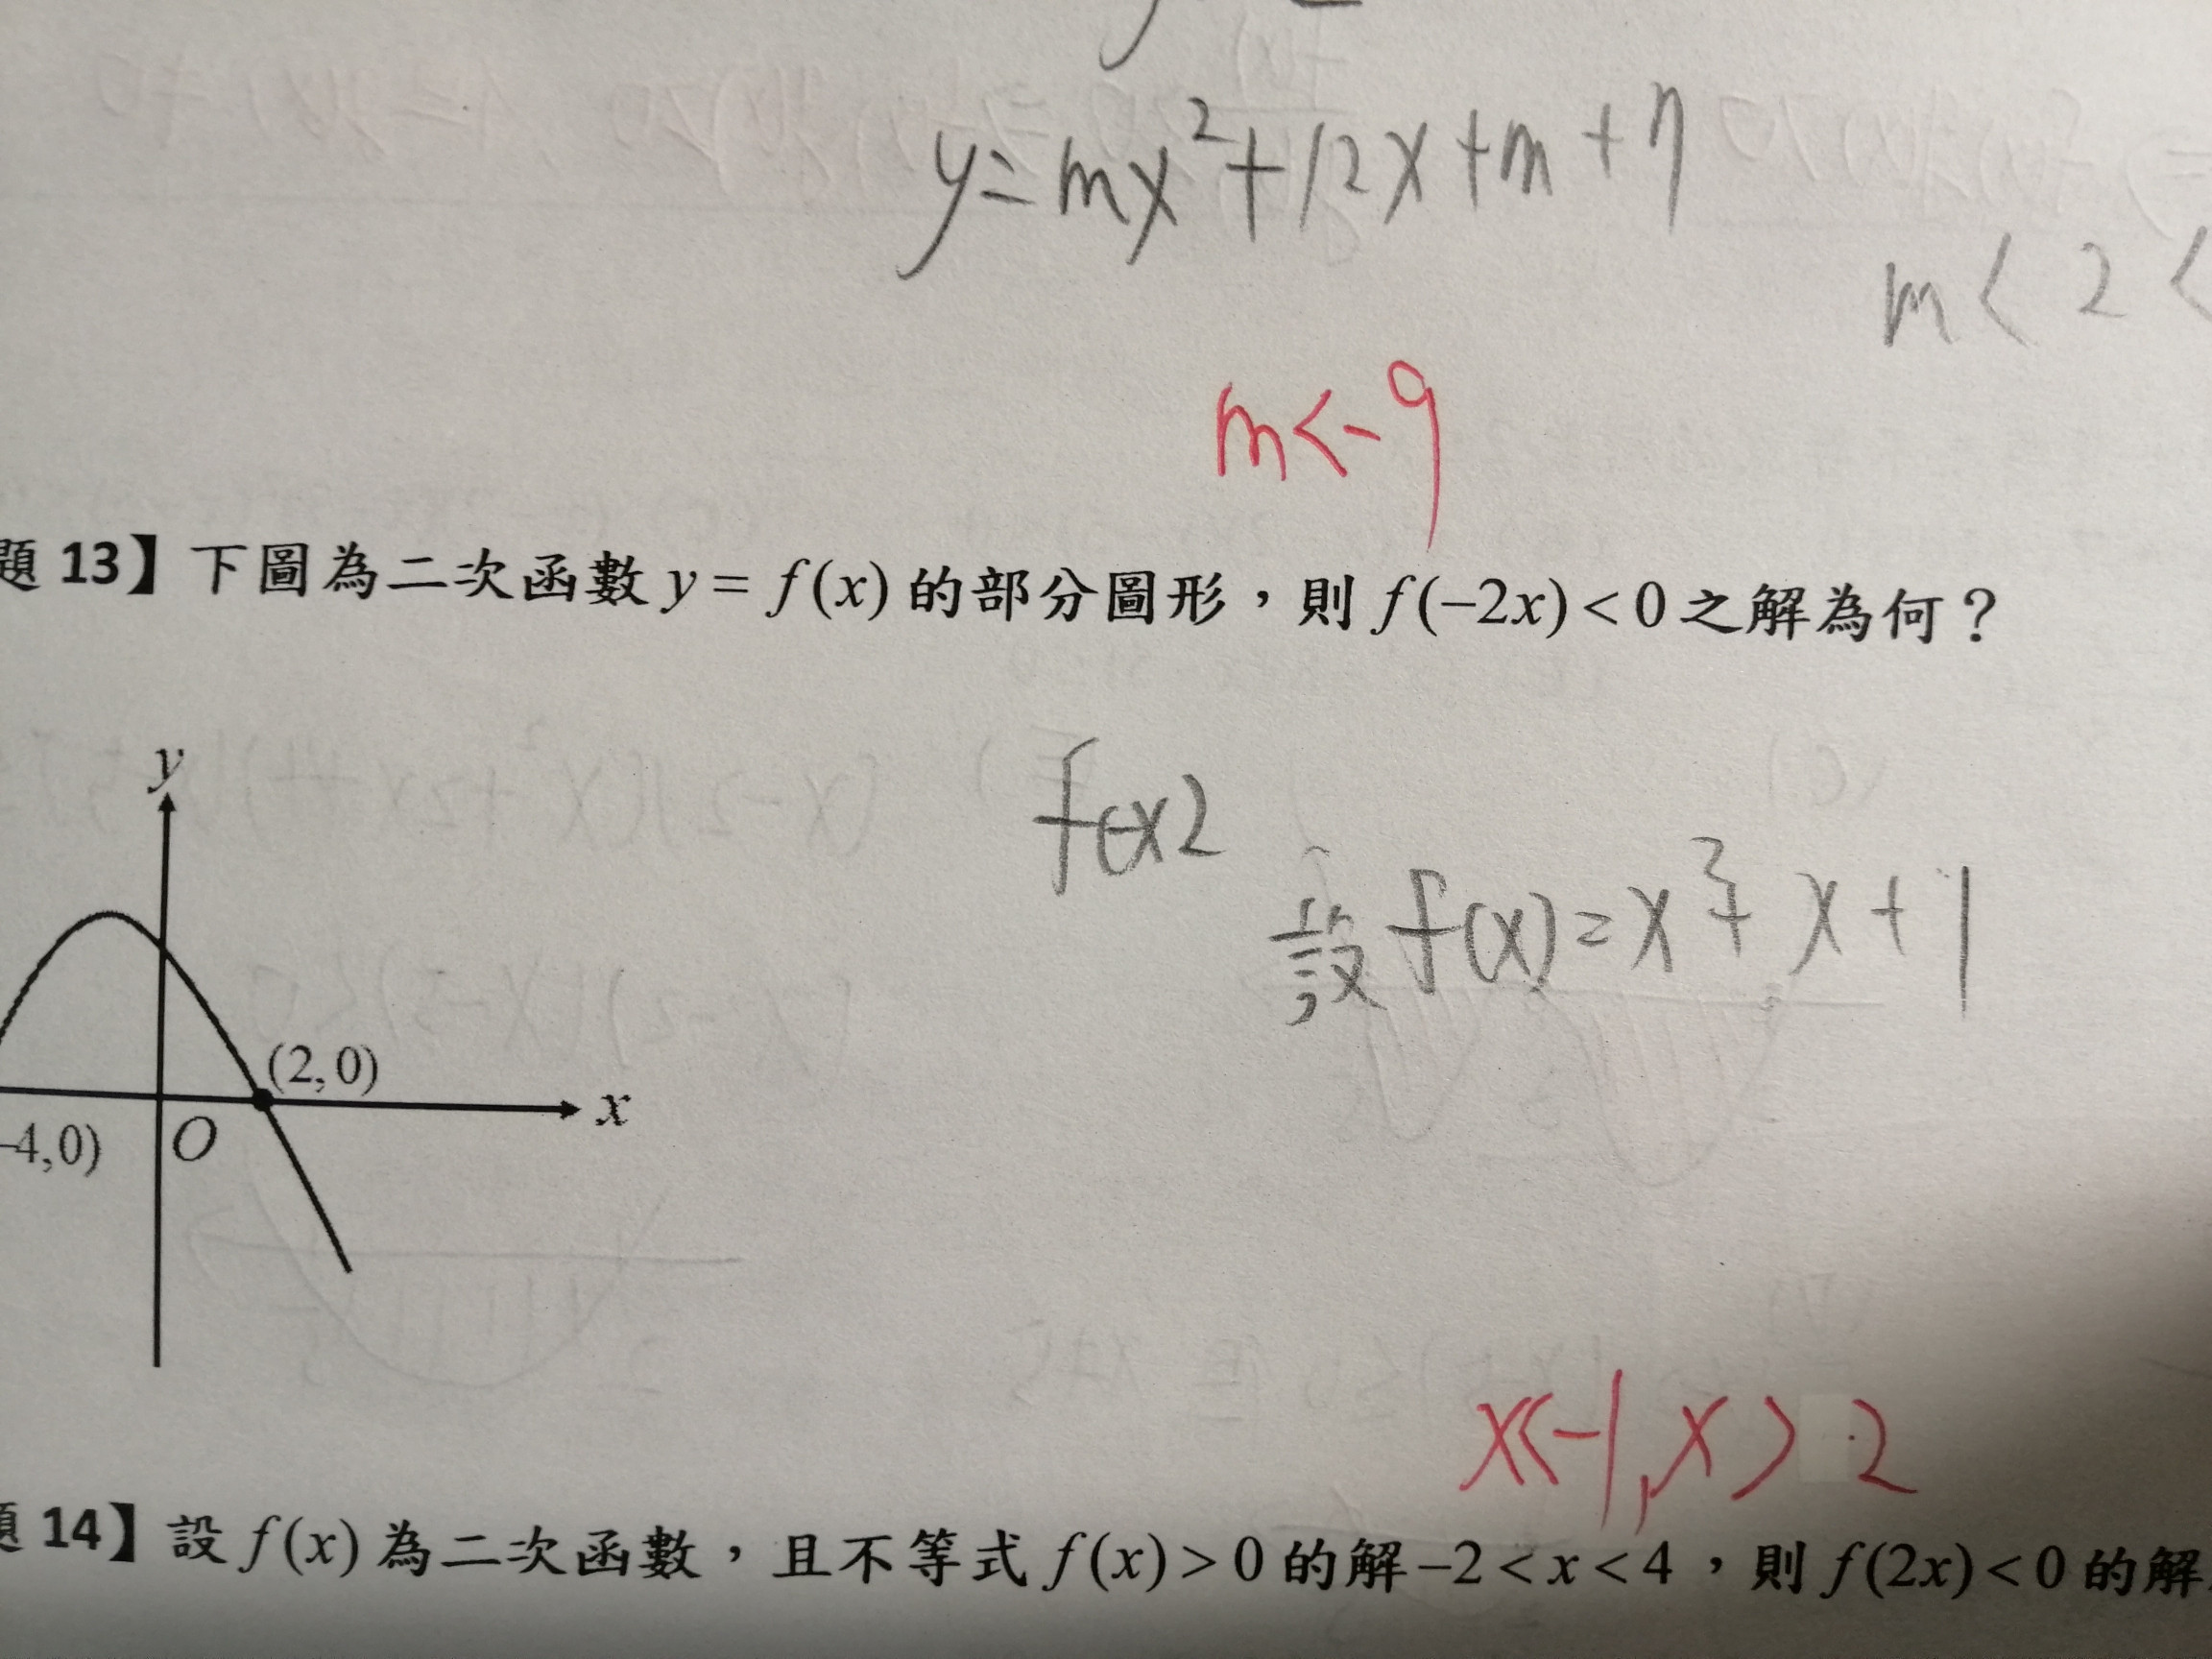 y=mx²+12x+m+7
m<2<
m<-9
題 13】下圖為二次函數 y = f(x) 的部分圖形，則 f(−2x) < 0 之解為何？
y
f(x2
設 f(x)=x²+x+1
(2,0)
x
−4,0)
O
x<-1,x>2
題 14】設 f(x) 為二次函數，且不等式 f(x) > 0 的解 −2 < x < 4，則 f(2x) < 0 的解